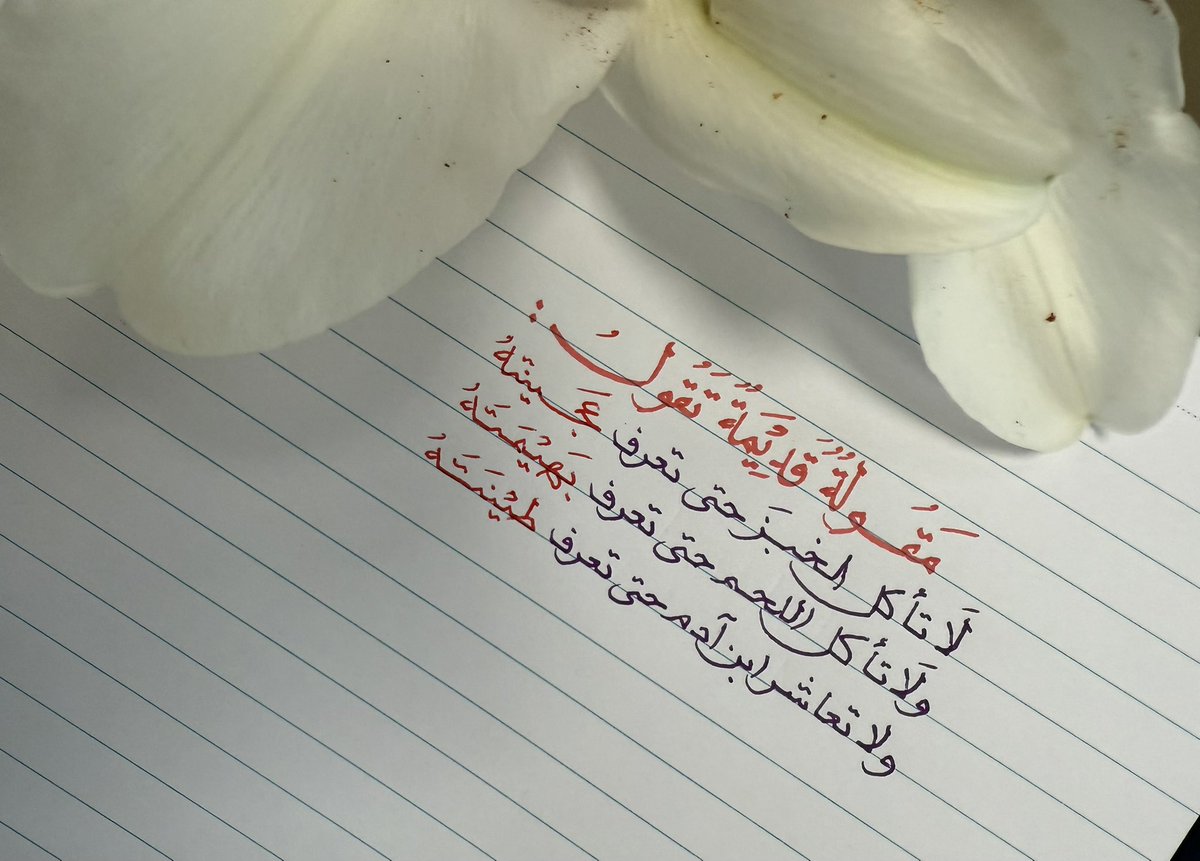 مَقُولَةٌ قَدِيْمَةٌ تَقُولُ :
لَا تأكل الخبزَ حتى تعرف عَجينتهُ
ولَا تأكل اللحم حتى تعرف بَهيْمَتَهُ
ولا تعاشر ابن آدم حتى تعرف طيْنَتَهُ